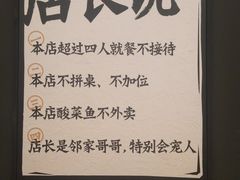 店长说
一 本店超过四人就餐不接待
二 本店不拼桌、不加位
三 本店酸菜鱼不外卖
四 店长是邻家哥哥,特别会宠人